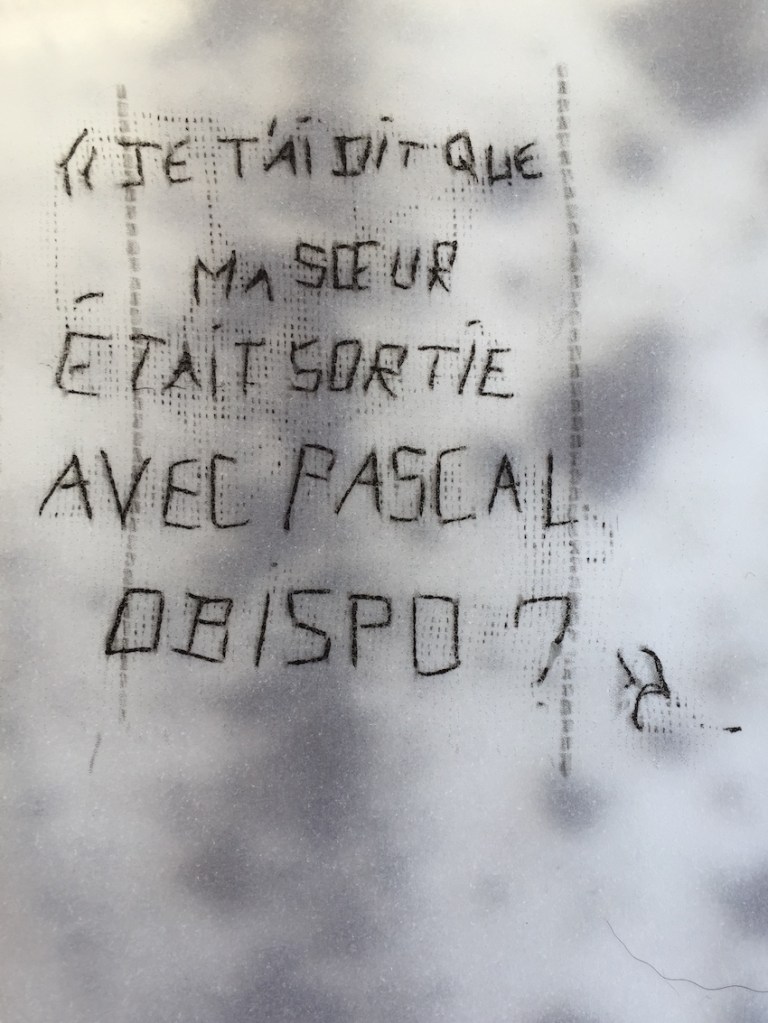 « JE T'AI DIT QUE
MA SŒUR
ÉTAIT SORTIE
AVEC PASCAL
OBISPO ? »